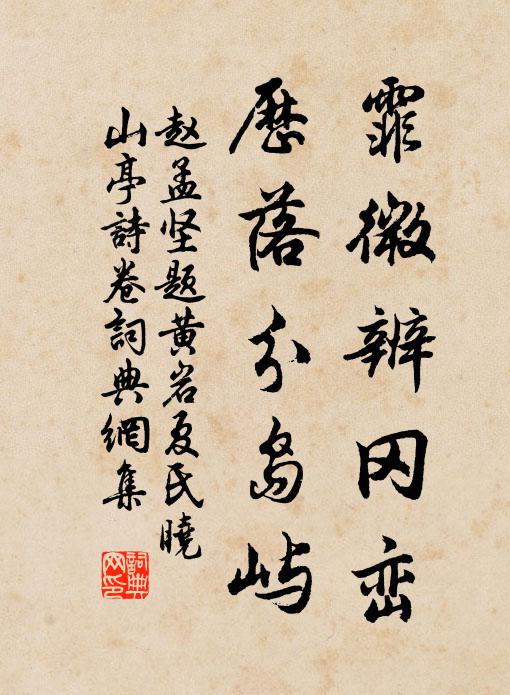 霏微辨冈峦
历落分岛屿
赵孟坚题黄岩夏氏晓
山亭詩卷詞典網集
詞典網印